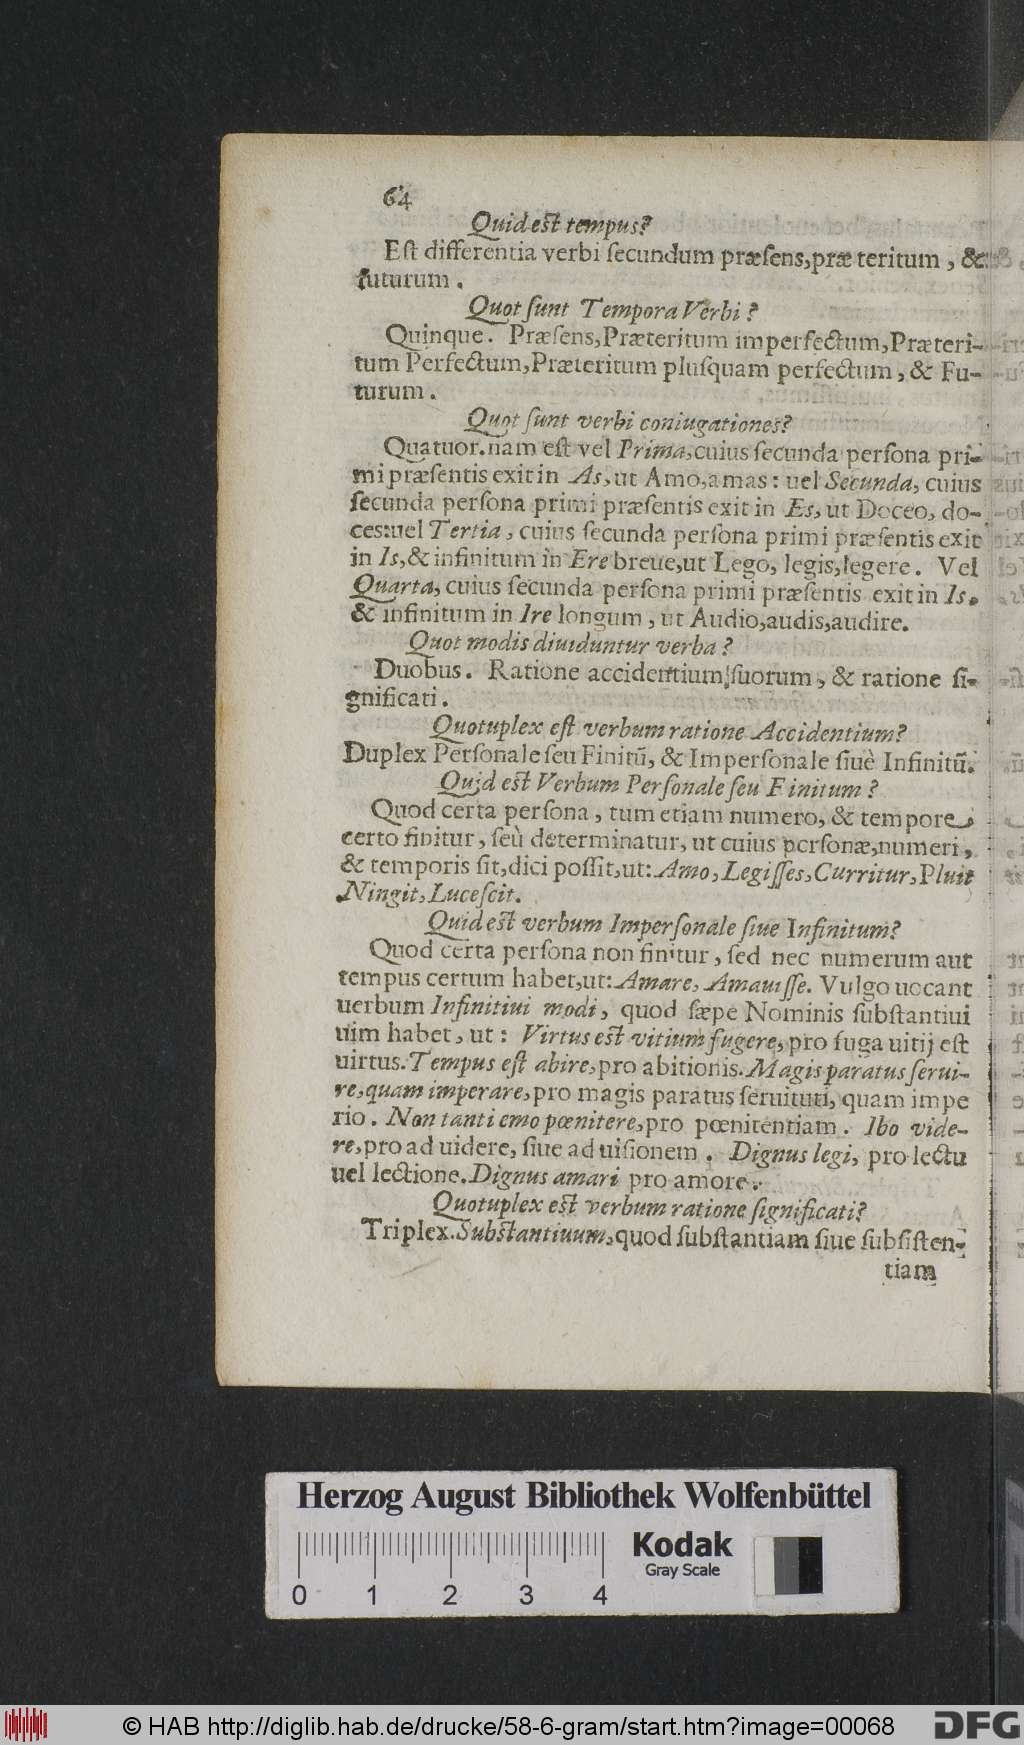 64
Quid est tempus?
Est differentia verbi ſecundum præſens, præ teritum, &
futurum.
Quot ſunt Tempora Verbi?
Quinque. Præſens, Præteritum imperfectum, Præteri-
tum Perfectum, Præteritum pluſquam perfectum, & Fu-
turum.
Quot ſunt verbi coniugationes?
Quatuor. nam eſt vel Prima, cuius ſecunda perſona pri-
mi præſentis exit in As, ut Amo, amas: uel Secunda, cuius
ſecunda perſona primi præſentis exit in Es, ut Doceo, do-
ces: uel Tertia, cuius ſecunda perſona primi præſentis exit
in Is, & infinitum in Ere breue, ut Lego, legis, legere. Vel
Quarta, cuius ſecunda perſona primi præſentis exit in Is.
& infinitum in Ire longum, ut Audio, audis, audire.
Quot modis diuiduntur verba?
Duobus. Ratione accidentium ſuorum, & ratione ſi-
gnificati.
Quotuplex eſt verbum ratione Accidentium?
Duplex Perſonale ſeu Finitū, & Imperſonale ſiuè Infinitū.
Quid eſt Verbum Perſonale ſeu Finitum?
Quod certa perſona, tum etiam numero, & tempore
certo finitur, ſeù determinatur, ut cuius perſonæ, numeri,
& temporis ſit, dici poſſit, ut: Amo, Legiſſes, Curritur, Pluit
Ningit, Luceſcit.
Quid eſt verbum Imperſonale ſiue Infinitum?
Quod certa perſona non finitur, ſed nec numerum aut
tempus certum habet, ut: Amare, Amauiſſe. Vulgo uocant
uerbum Infinitiui modi, quod ſæpe Nominis ſubſtantiui
uim habet, ut: Virtus eſt vitium fugere, pro fuga uitij eſt
uirtus. Tempus eſt abire, pro abitionis. Magis paratus ſerui-
re, quam imperare, pro magis paratus ſeruituti, quam impe
rio. Non tanti emo pœnitere, pro pœnitentiam. Ibo vide-
re, pro ad uidere, ſiue ad uiſionem. Dignus legi, pro lectu
uel lectione. Dignus amari pro amore.
Quotuplex eſt verbum ratione ſignificati?
Triplex. Subſtantiuum, quod ſubſtantiam ſiue ſubſiſten-
tiam
Herzog August Bibliothek Wolfenbüttel
Kodak
Gray Scale
0 1 2 3 4
© HAB http://diglib.hab.de/drucke/58-6-gram/start.htm?image=00068
DFG